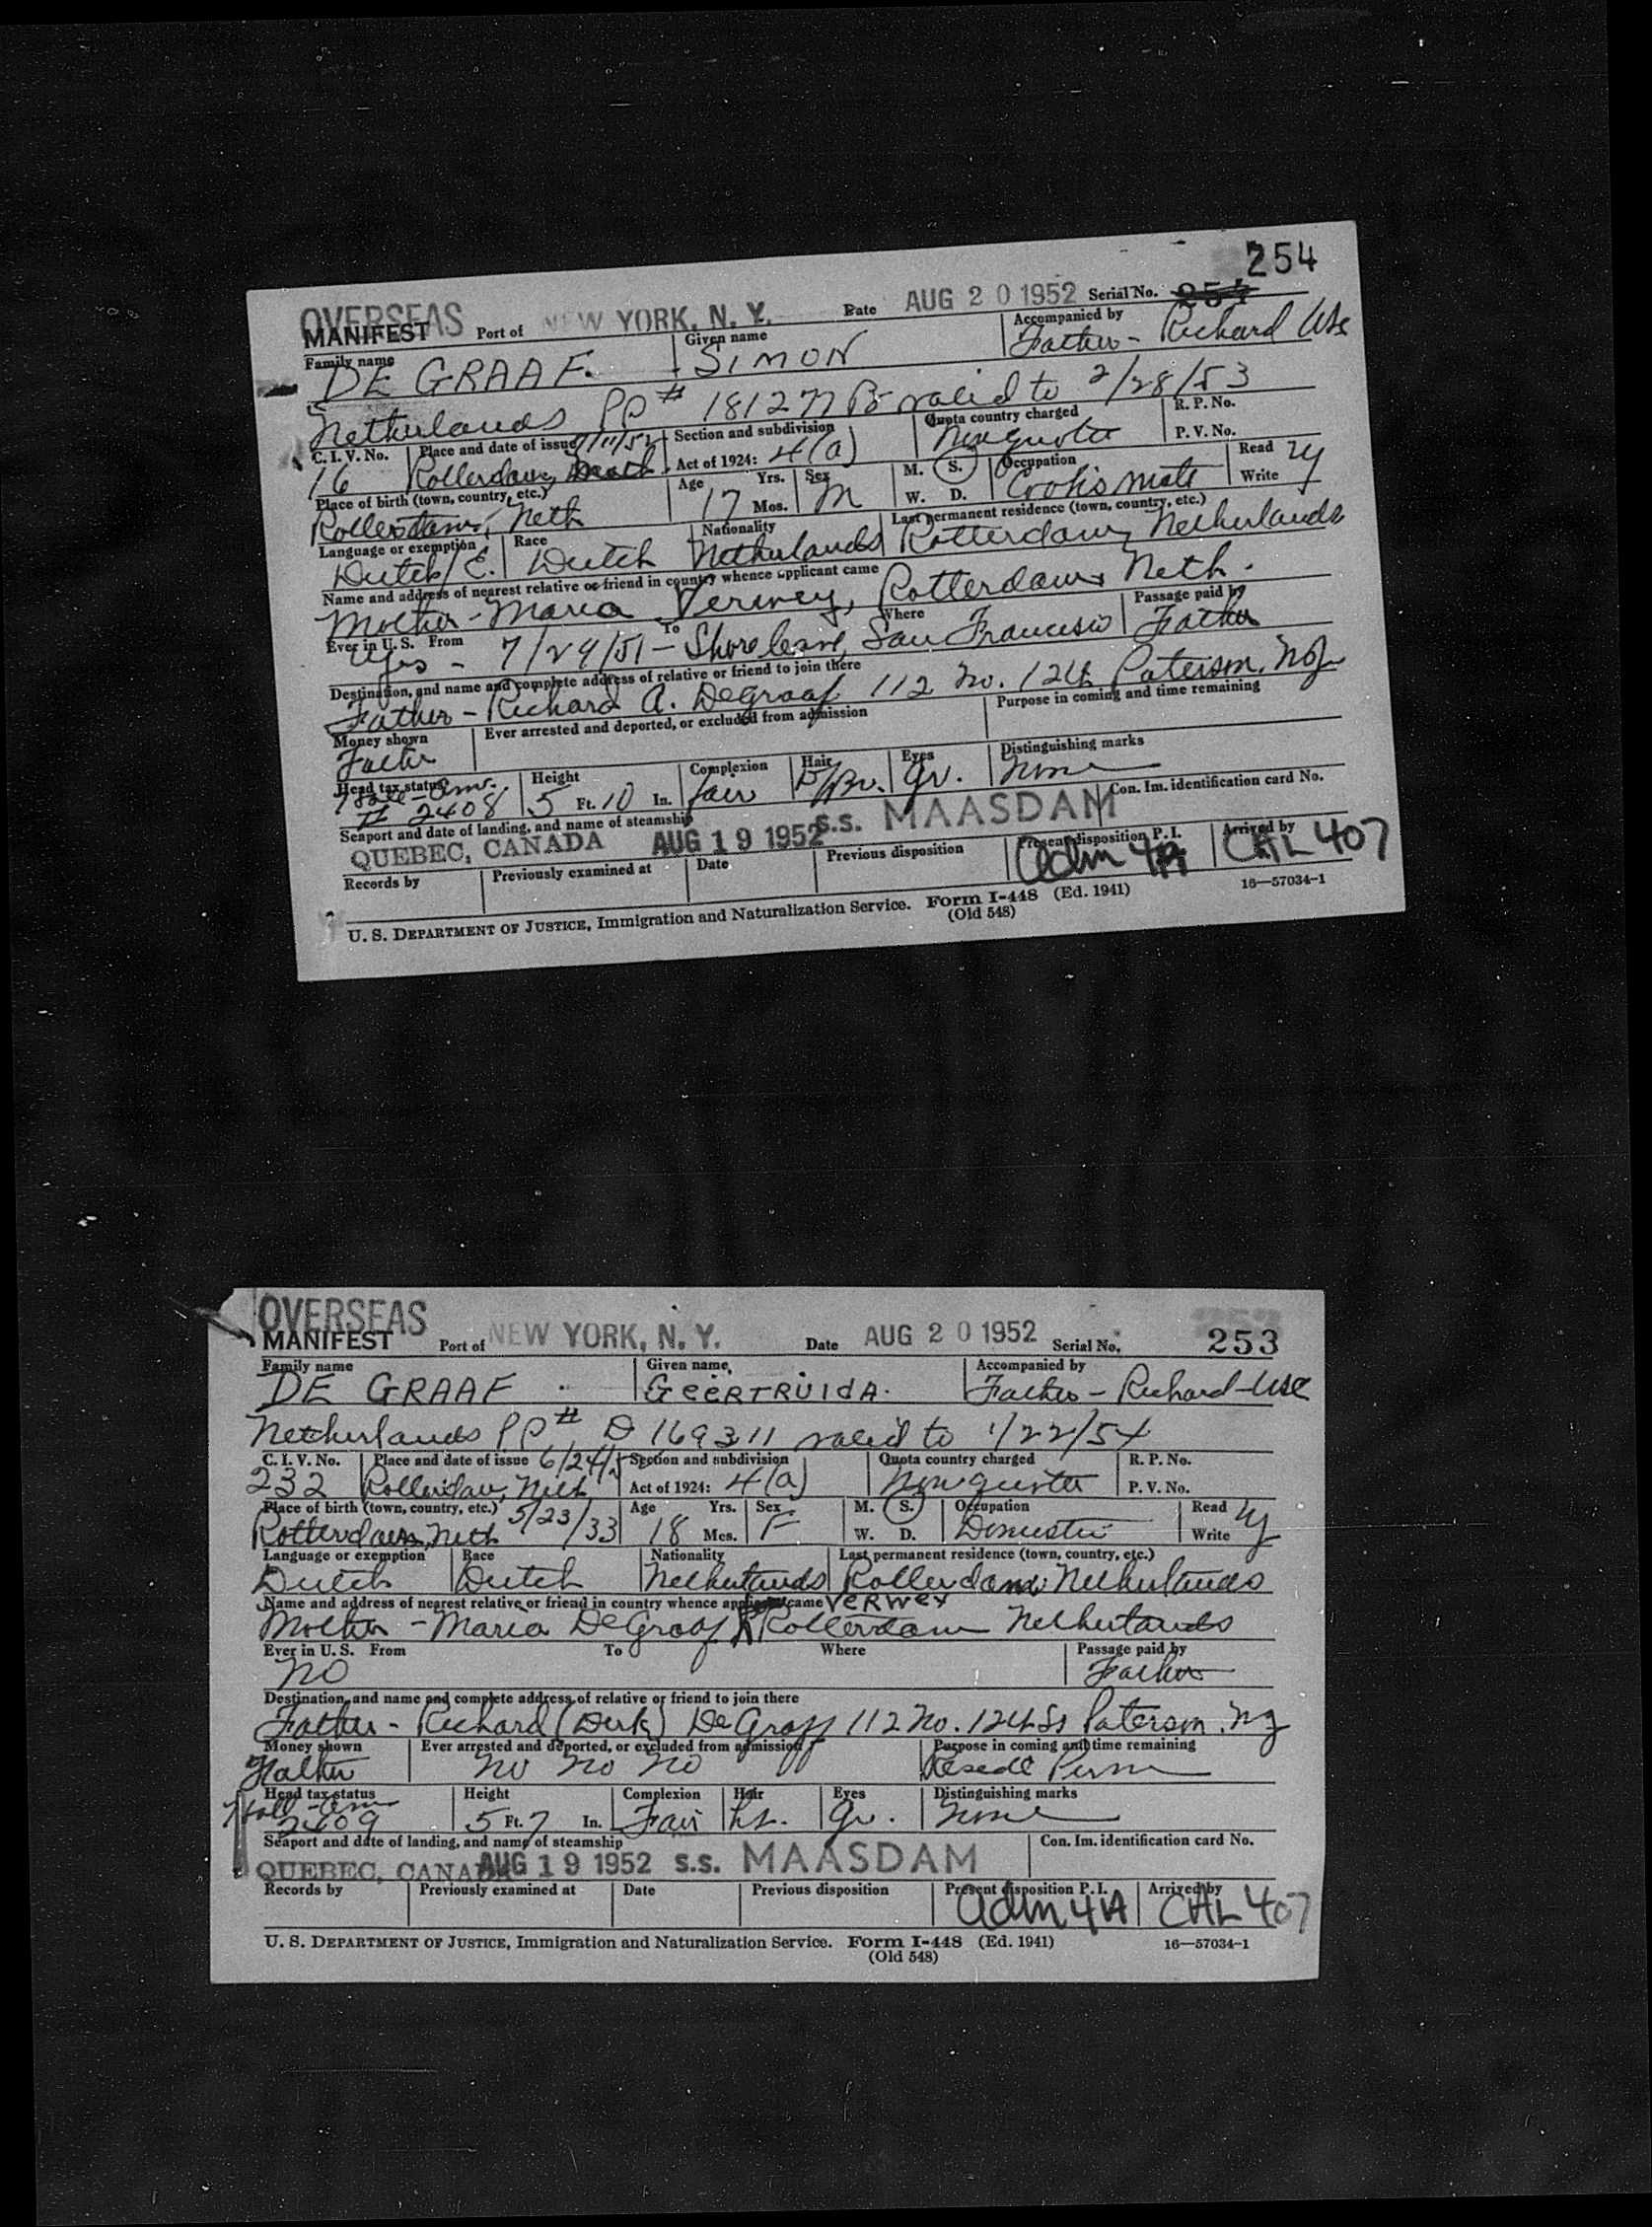 254
OVERSEAS
MANIFEST Port of NEW YORK, N. Y. Date AUG 20 1952 Serial No. 254
Family name Given name Accompanied by
DE GRAAF. SIMON Father - Richard USC
Netherlands PP# 181277 B valid to 2/28/53
C. I. V. No. Place and date of issue 7/11/52 Section and subdivision Quota country charged R. P. No.
16 Rotterdam, Neth. Act of 1924: 4(a) Nonquota P. V. No.
Place of birth (town, country, etc.) Age Yrs. Sex M. S. Occupation Read
Rotterdam, Neth 17 Mos. M W. D. Cook's mate Write y
Language or exemption Race Nationality Last permanent residence (town, country, etc.)
Dutch/E. Dutch Netherlands Rotterdam, Netherlands
Name and address of nearest relative or friend in country whence applicant came
Mother - Maria Verwey, Rotterdam, Neth.
Ever in U. S. From To Where Passage paid by
Yes - 7/29/51 - Shore leave, San Francisco Father
Destination, and name and complete address of relative or friend to join there
Father - Richard A. Degraaf 112 No. 12th Paterson, NJ
Money shown Ever arrested and deported, or excluded from admission Purpose in coming and time remaining
Father
Head tax status Height Complexion Hair Eyes Distinguishing marks
Holl-Am. # 2408 5 Ft. 10 In. fair D/Br. Gr. none
Seaport and date of landing, and name of steamship Con. Im. identification card No.
QUEBEC, CANADA AUG 19 1952 S.S. MAASDAM
Records by Previously examined at Date Previous disposition Present disposition P. I. Arrived by
Adm 4A CHL 407
U. S. DEPARTMENT OF JUSTICE, Immigration and Naturalization Service. Form I-448 (Ed. 1941) 16—57034-1
(Old 548)
OVERSEAS
MANIFEST Port of NEW YORK, N. Y. Date AUG 20 1952 Serial No. 253
Family name Given name Accompanied by
DE GRAAF GEERTRUIDA. Father - Richard - USC
Netherlands PP# D 169311 valid to 1/22/54
C. I. V. No. Place and date of issue 6/24/5 Section and subdivision Quota country charged R. P. No.
232 Rotterdam, Neth Act of 1924: 4(a) Nonquota P. V. No.
Place of birth (town, country, etc.) 5/23/33 Age Yrs. Sex M. S. Occupation Read
Rotterdam, Neth 18 Mos. F W. D. Domestic Write y
Language or exemption Race Nationality Last permanent residence (town, country, etc.)
Dutch Dutch Netherlands Rotterdam Netherlands
Name and address of nearest relative or friend in country whence applicant came VERWEY
Mother - Maria DeGraaf Rotterdam Netherlands
Ever in U. S. From To Where Passage paid by
No Father
Destination, and name and complete address of relative or friend to join there
Father - Richard (Dirk) De Graaf 112 No. 12th St Paterson, NJ
Money shown Ever arrested and deported, or excluded from admission Purpose in coming and time remaining
Father No No No Reside Perm
Head tax status Height Complexion Hair Eyes Distinguishing marks
Holl-Am 2409 5 Ft. 7 In. Fair Gr. none
Seaport and date of landing, and name of steamship Con. Im. identification card No.
QUEBEC, CANADA AUG 19 1952 S.S. MAASDAM
Records by Previously examined at Date Previous disposition Present disposition P. I. Arrived by
Adm 4A CHL 407
U. S. DEPARTMENT OF JUSTICE, Immigration and Naturalization Service. Form I-448 (Ed. 1941) 16—57034-1
(Old 548)